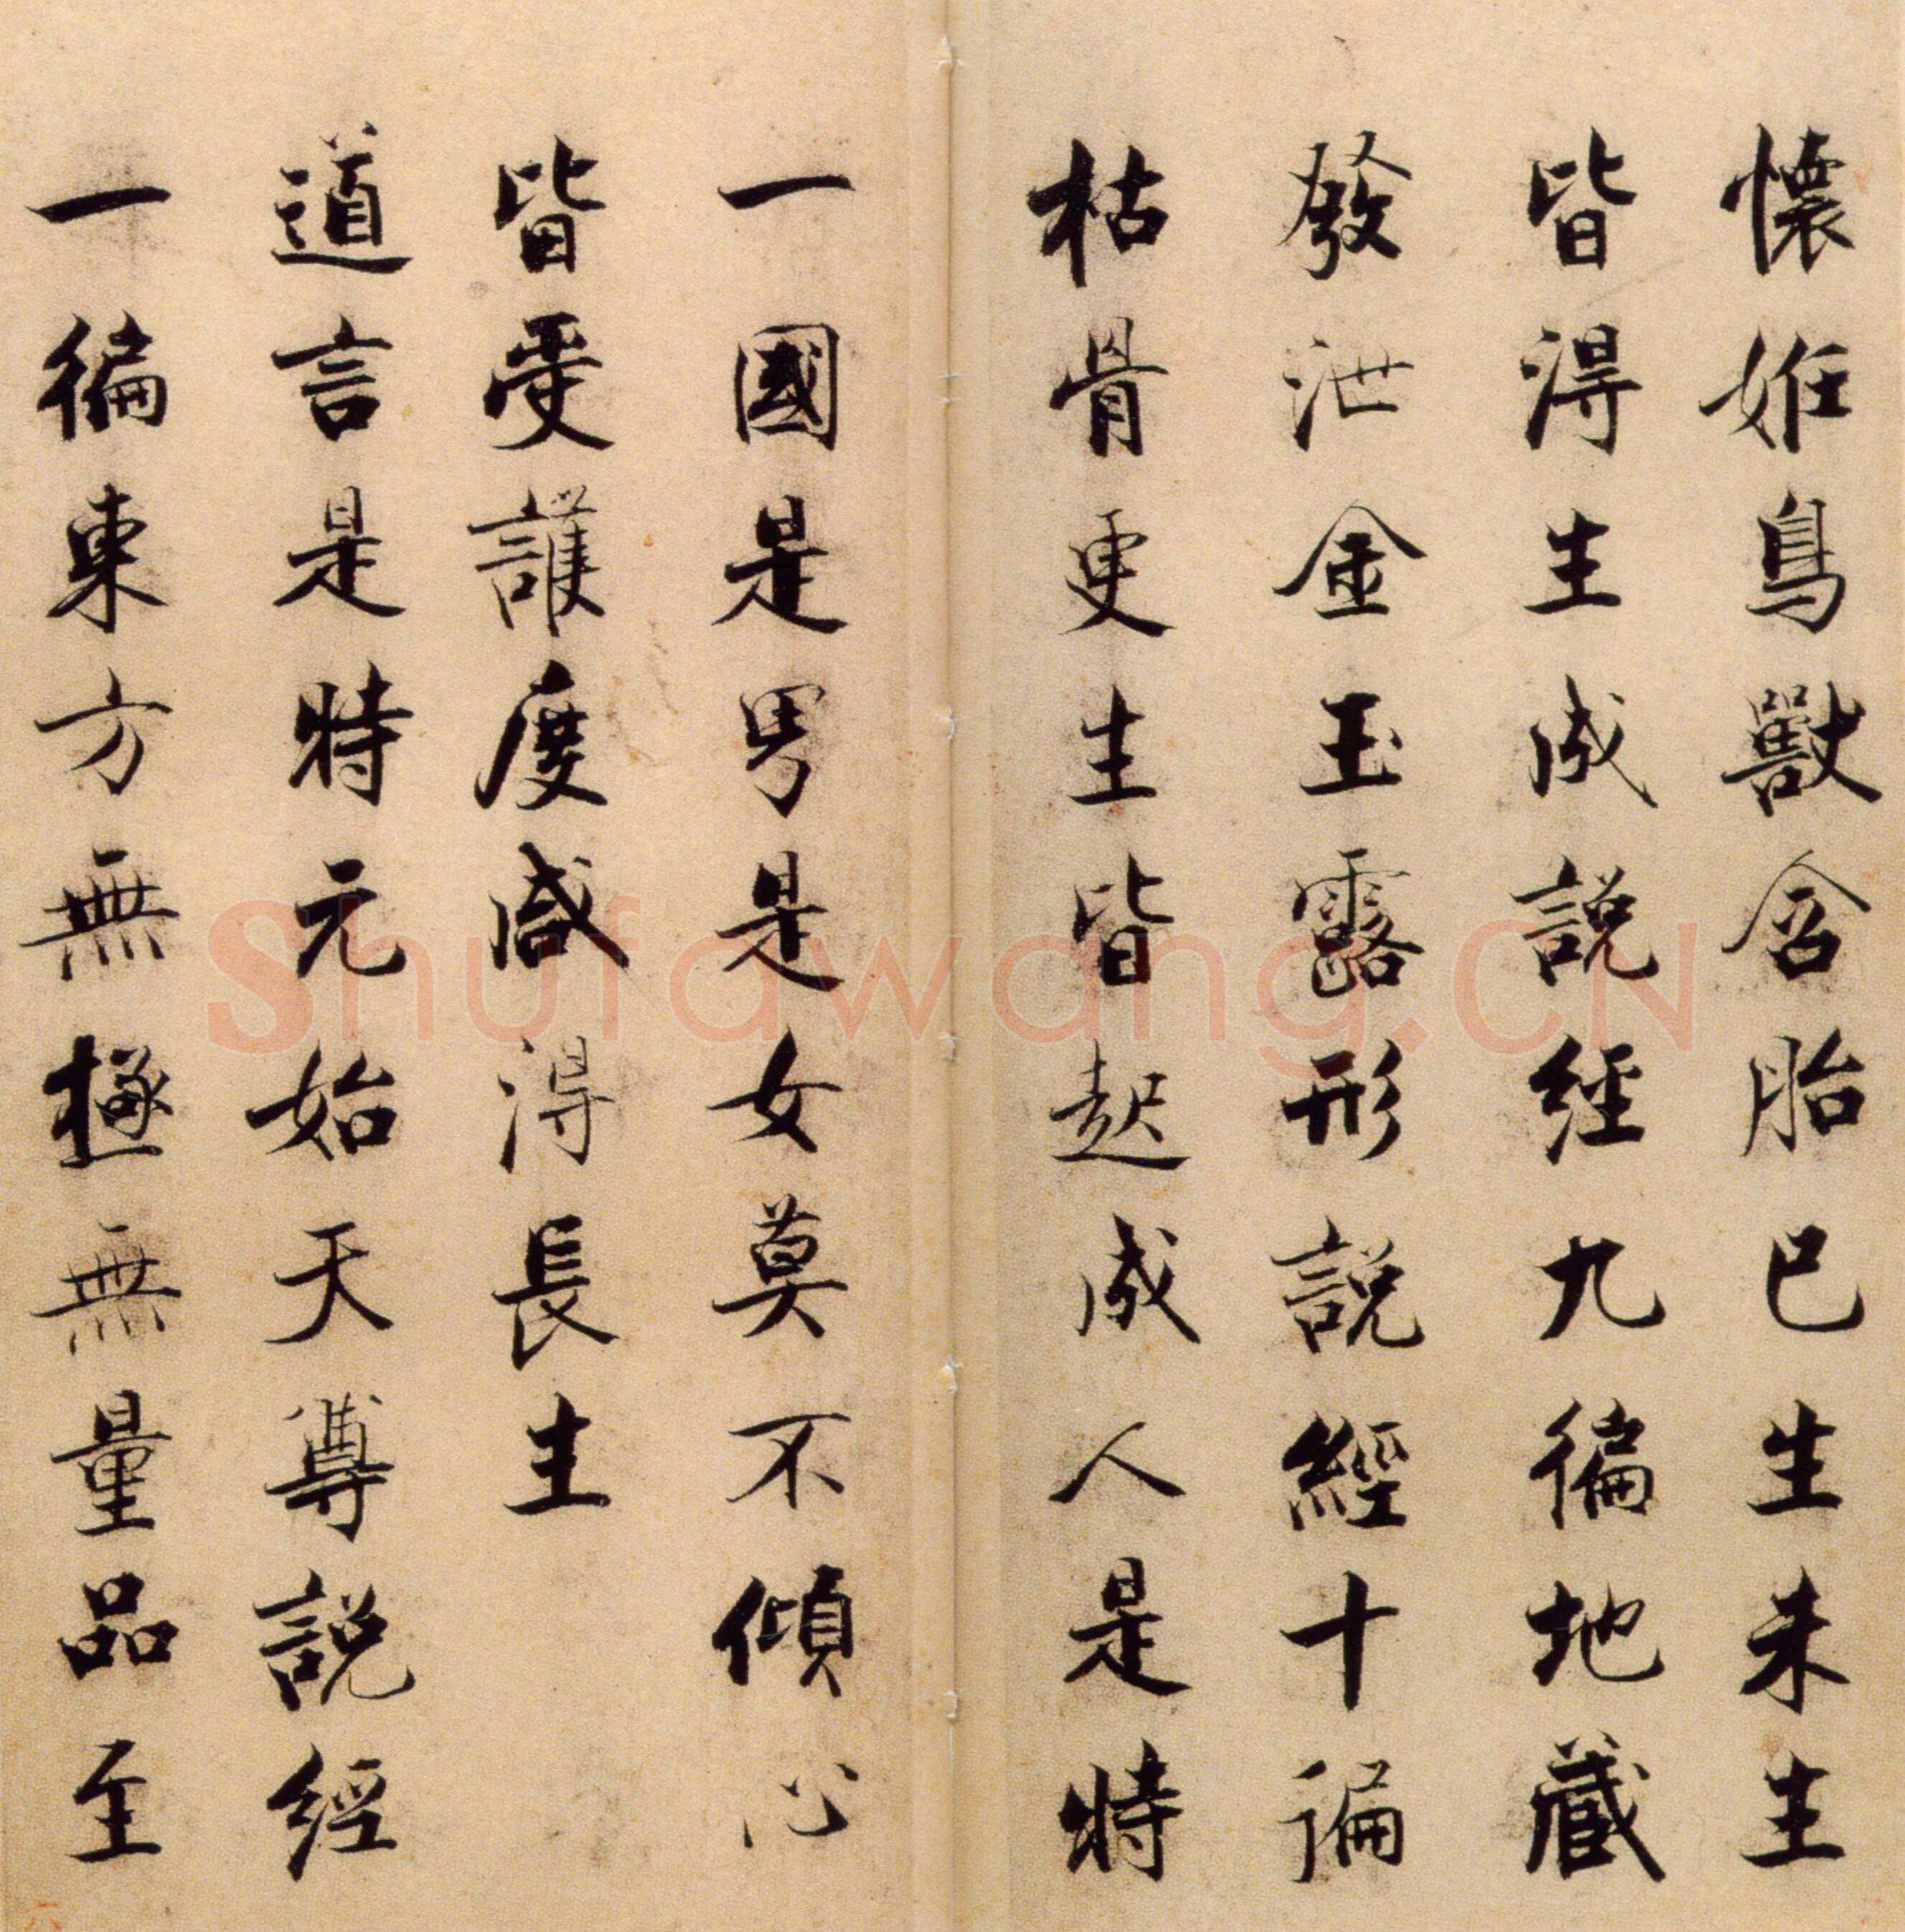 懷姙鳥獸含胎已生未生
皆淂生成說經九徧地藏
發泄金玉露形說經十徧
枯骨更生皆起成人是時
一國是男是女莫不傾心
皆受護度咸淂長生
道言是時元始天尊說經
一徧東方無極無量品至
shufawang.CN
六